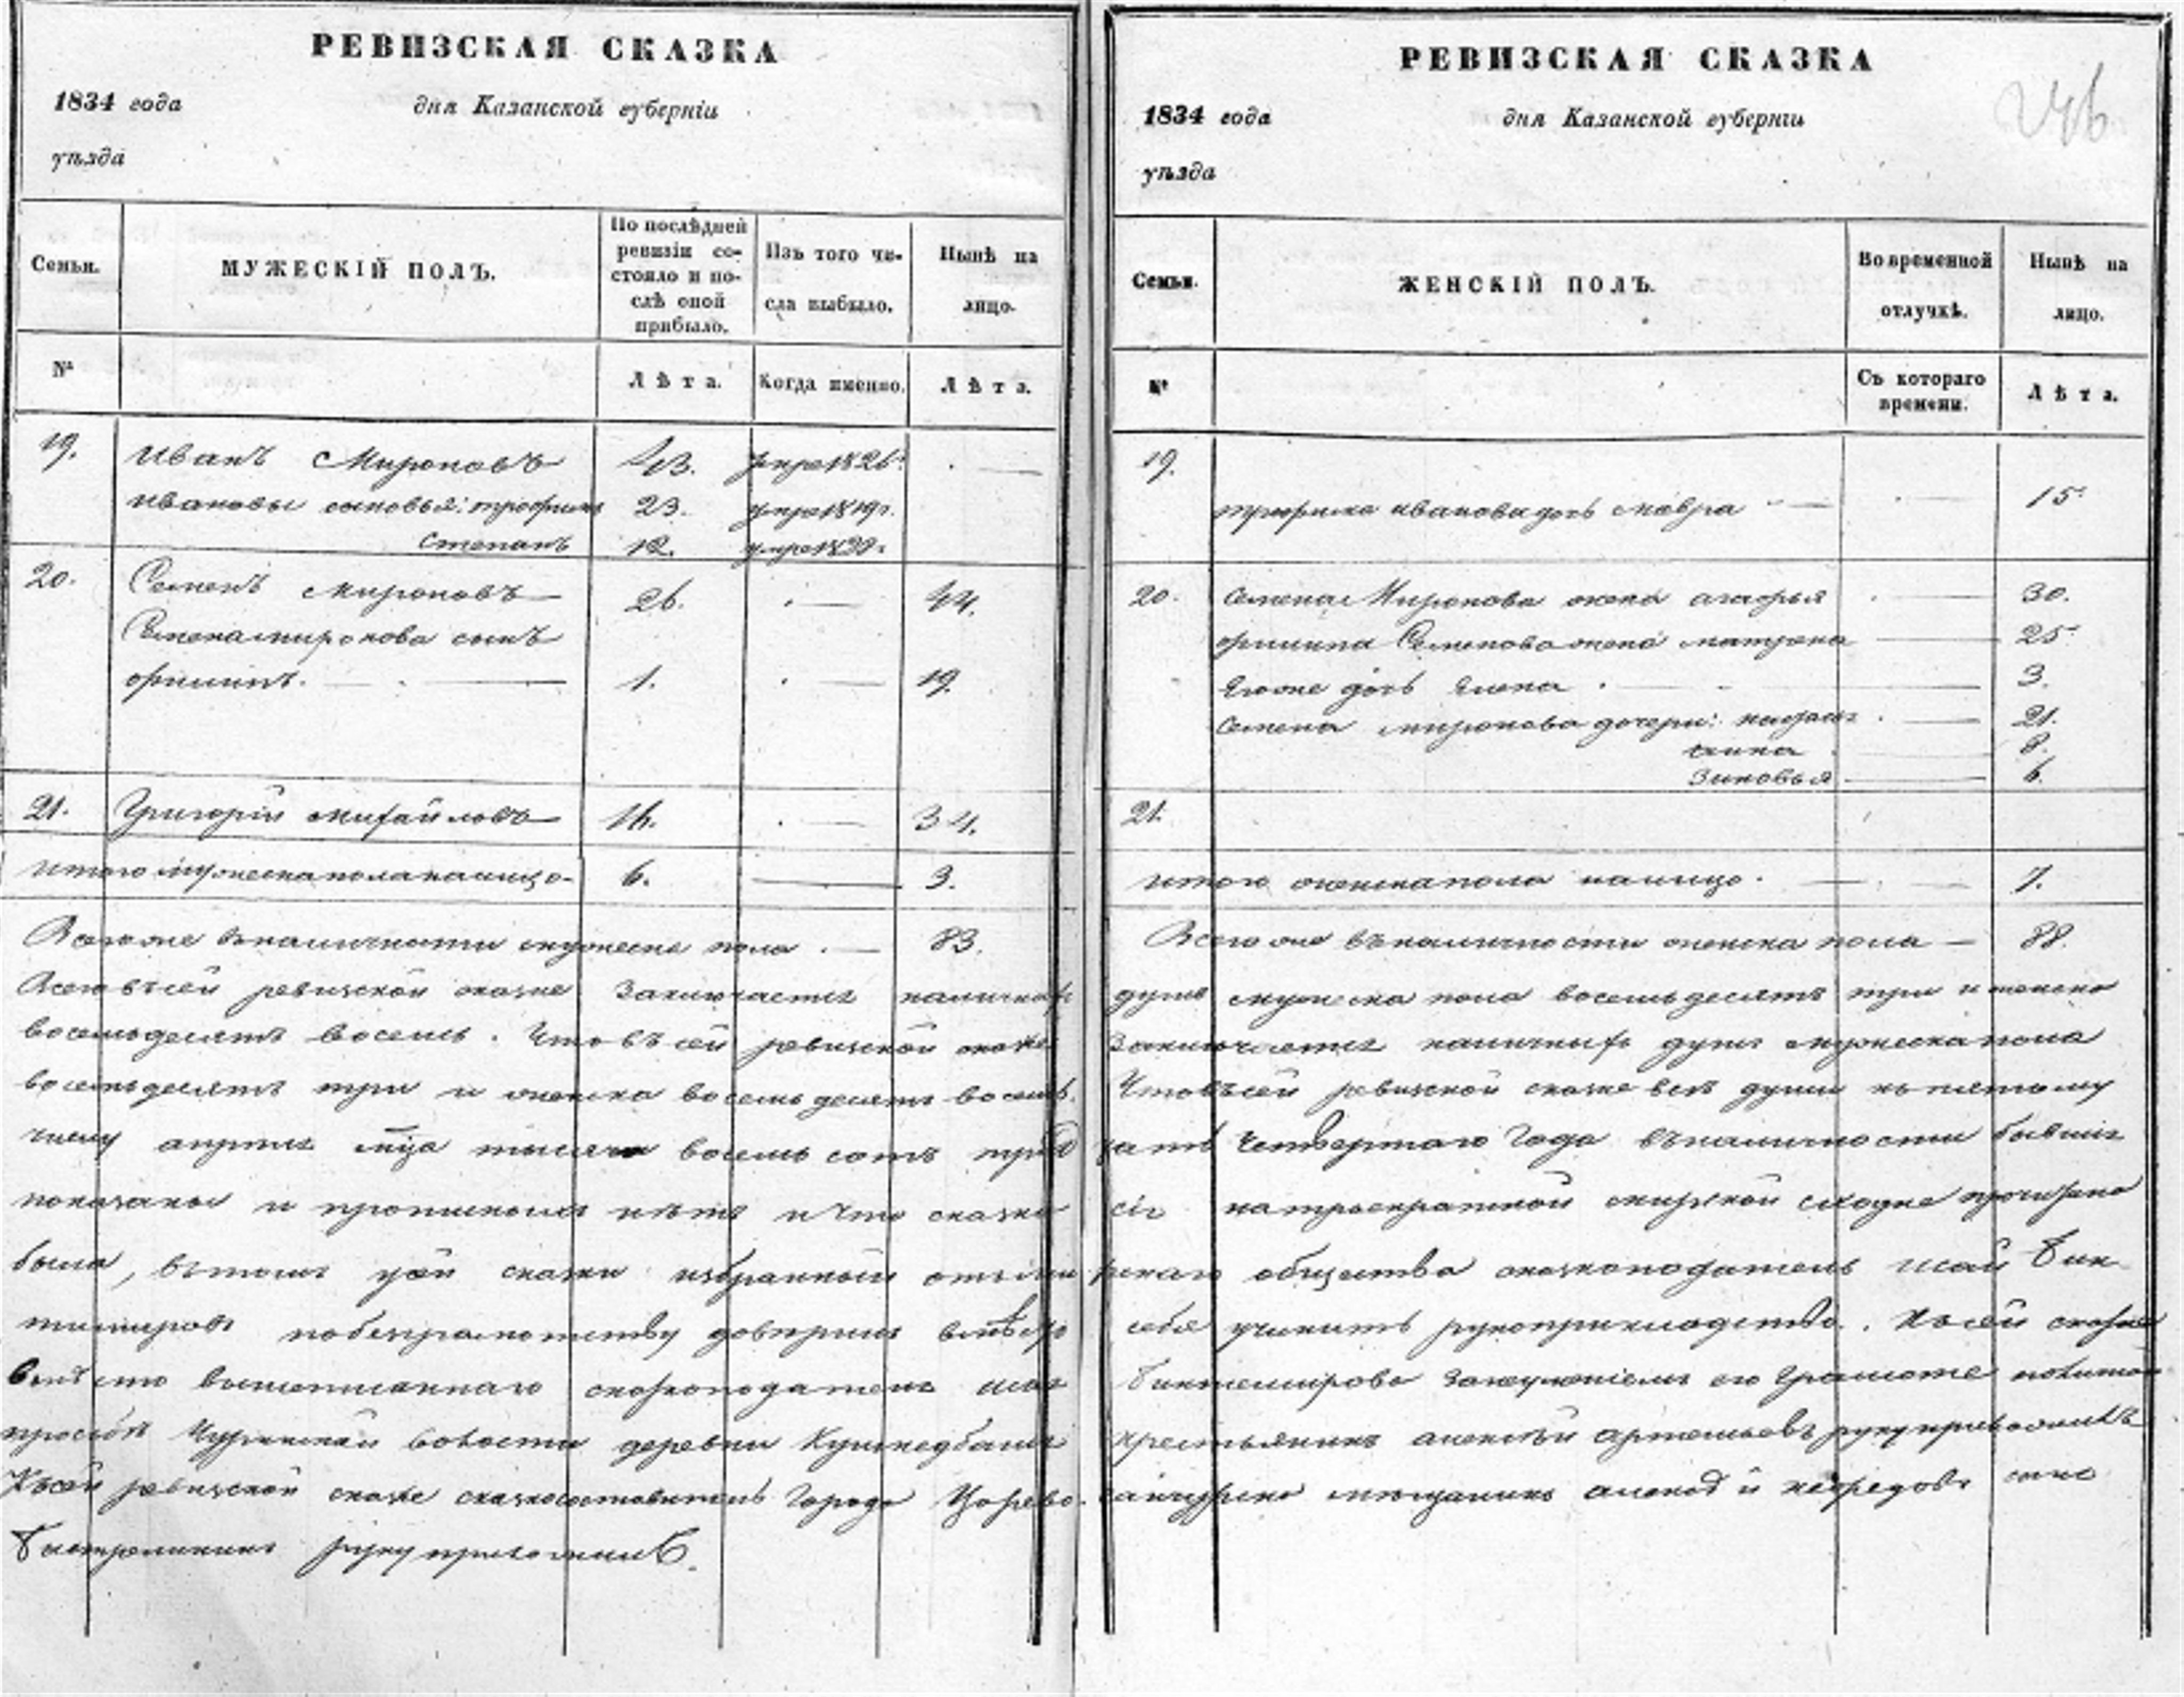 РЕВИЗСКАЯ СКАЗКА
1834 года дня Казанской губерніи
уѣзда
Семьи. МУЖЕСКІЙ ПОЛЪ. По послѣдней ревизіи состояло и послѣ оной прибыло. Изъ того числа выбыло. Нынѣ на лицо.
№ Лѣта. Когда именно. Лѣта.
19. Иванъ Мироновъ 43. умре 1826:
Ивановы сыновья: трофимъ 23. умре 1819г.
Степанъ 12. умре
20. Семенъ Мироновъ 26. 44.
Семена миронова сынъ
филипъ. 1. 19.
21. Григорій михайловъ 16. 34.
итого мужеска пола налицо 6. 3.
Всегоже вналичности мужеска пола 83.
РЕВИЗСКАЯ СКАЗКА
1834 года дня Казанской губерніи
уѣзда
Семьи. ЖЕНСКІЙ ПОЛЪ. Во временной отлучкѣ. Нынѣ на лицо.
№ Съ котораго времени. Лѣта.
19.
трофима иванова дочь мавра 15
20. семена Миронова жена агафья 30.
филипа Семенова жена матрена 25
Егоже дочь Елена 3.
семена миронова дочери: 21.
зиновья 6.
21.
итого женска пола налицо 7.
Всегоже въналичности женска пола 88.
Всего въсей ревизской сказке заключается наличныхъ душъ мужеска пола восемьдесятъ три и женска
восемьдесятъ восемь. Что въ сей ревизской сказке заключается наличныхъ душъ мужеска пола
восемьдесятъ три и женска восемь десятъ восемь. Что въсей ревизской сказке все души къ пятому
числу апреля мца тысяча восемь сотъ тридцать четвертаго года въналичности бывшия
показаны и прописныхъ нѣтъ и что сказка сія на троекратной мирской сходке прочитана
была, втомъ сей сказки избранный отъ мирскаго общества сказкоподатель
побезграмотству доверилъ вместо себя учинить рукоприкладство. Къ сей сказке
вместо вышеписаннаго сказкоподателя Биктемирова занеумѣніемъ его грамоте
просьбе волости деревни крестьянинъ алексѣй артемьевъ руку приложилъ
Къ сей ревизской сказке сказкосоставитель города Царевосанчурска мещанинъ сынъ
руку приложилъ.